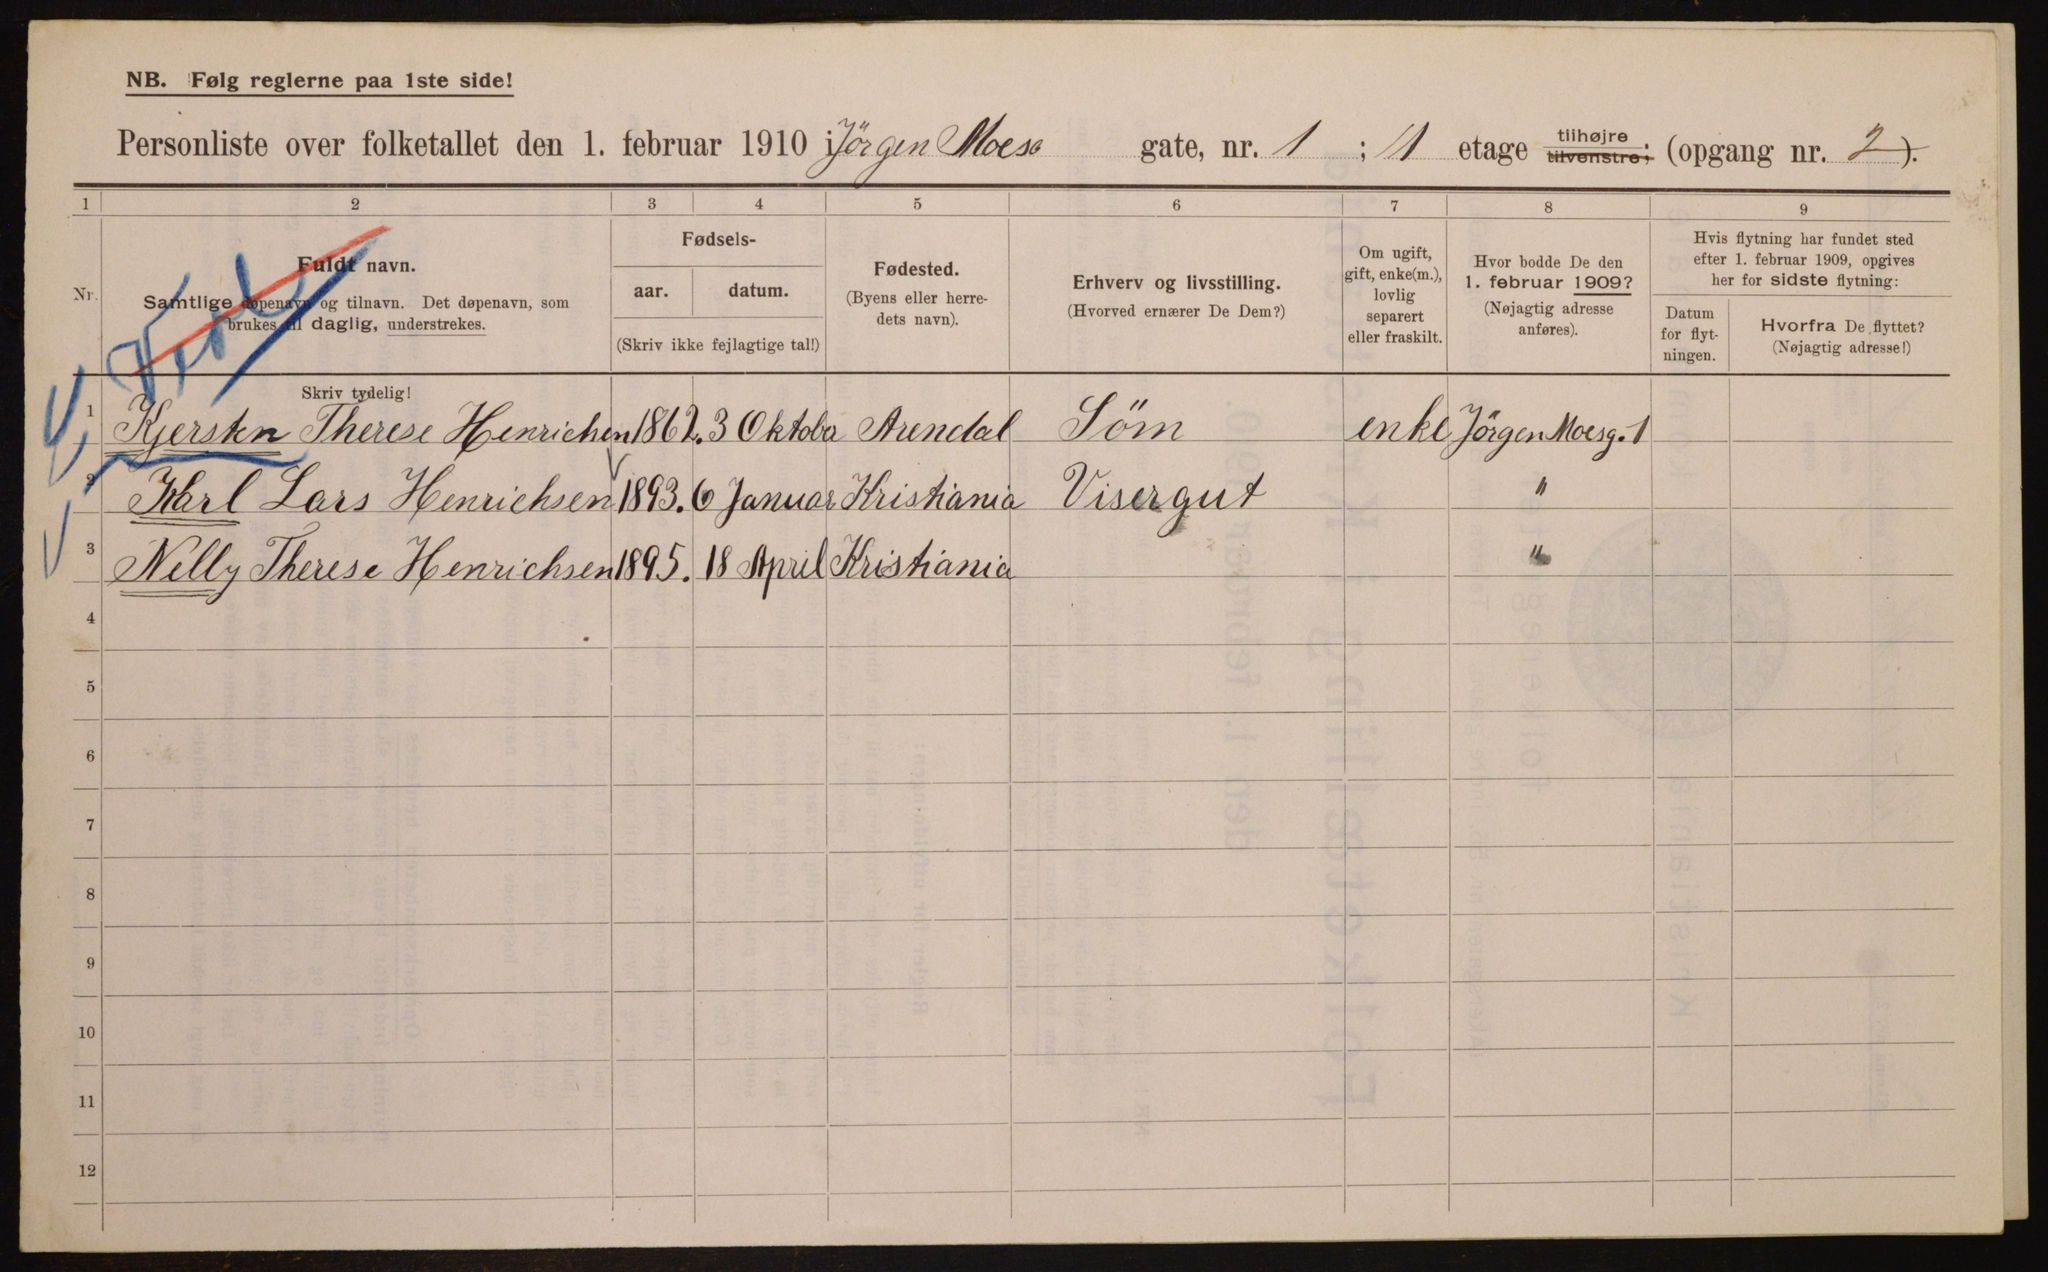 NB. Følg reglerne paa 1ste side!
Personliste over folketallet den 1. februar 1910 i Jörgen Moes gate, nr. 1 ; 1 etage tilhøjre tilvenstre; (opgang nr. 2).
1 2 3 4 5 6 7 8 9
Nr.
Fuldt navn.
Samtlige døpenavn og tilnavn. Det døpenavn, som
brukes til daglig, understrekes.
Skriv tydelig!
Fødsels-
aar. datum.
(Skriv ikke fejlagtige tal!)
Fødested.
(Byens eller herre-
dets navn).
Erhverv og livsstilling.
(Hvorved ernærer De Dem?)
Om ugift,
gift, enke(m.),
lovlig
separert
eller fraskilt.
Hvor bodde De den
1. februar 1909?
(Nøjagtig adresse
anføres).
Hvis flytning har fundet sted
efter 1. februar 1909, opgives
her for sidste flytning:
Datum
for flyt-
ningen.
Hvorfra De flyttet?
(Nøjagtig adresse!)
1 Kjersten Therese Henrichen 1862. 3 Oktobr Arendal Söm enke Jörgen Moesg. 1
2 Karl Lars Henrichsen 1893. 6 Januar Kristiania Visergut "
3 Nelly Therese Henrichsen 1895. 18 April Kristiania "
4
5
6
7
8
9
10
11
12